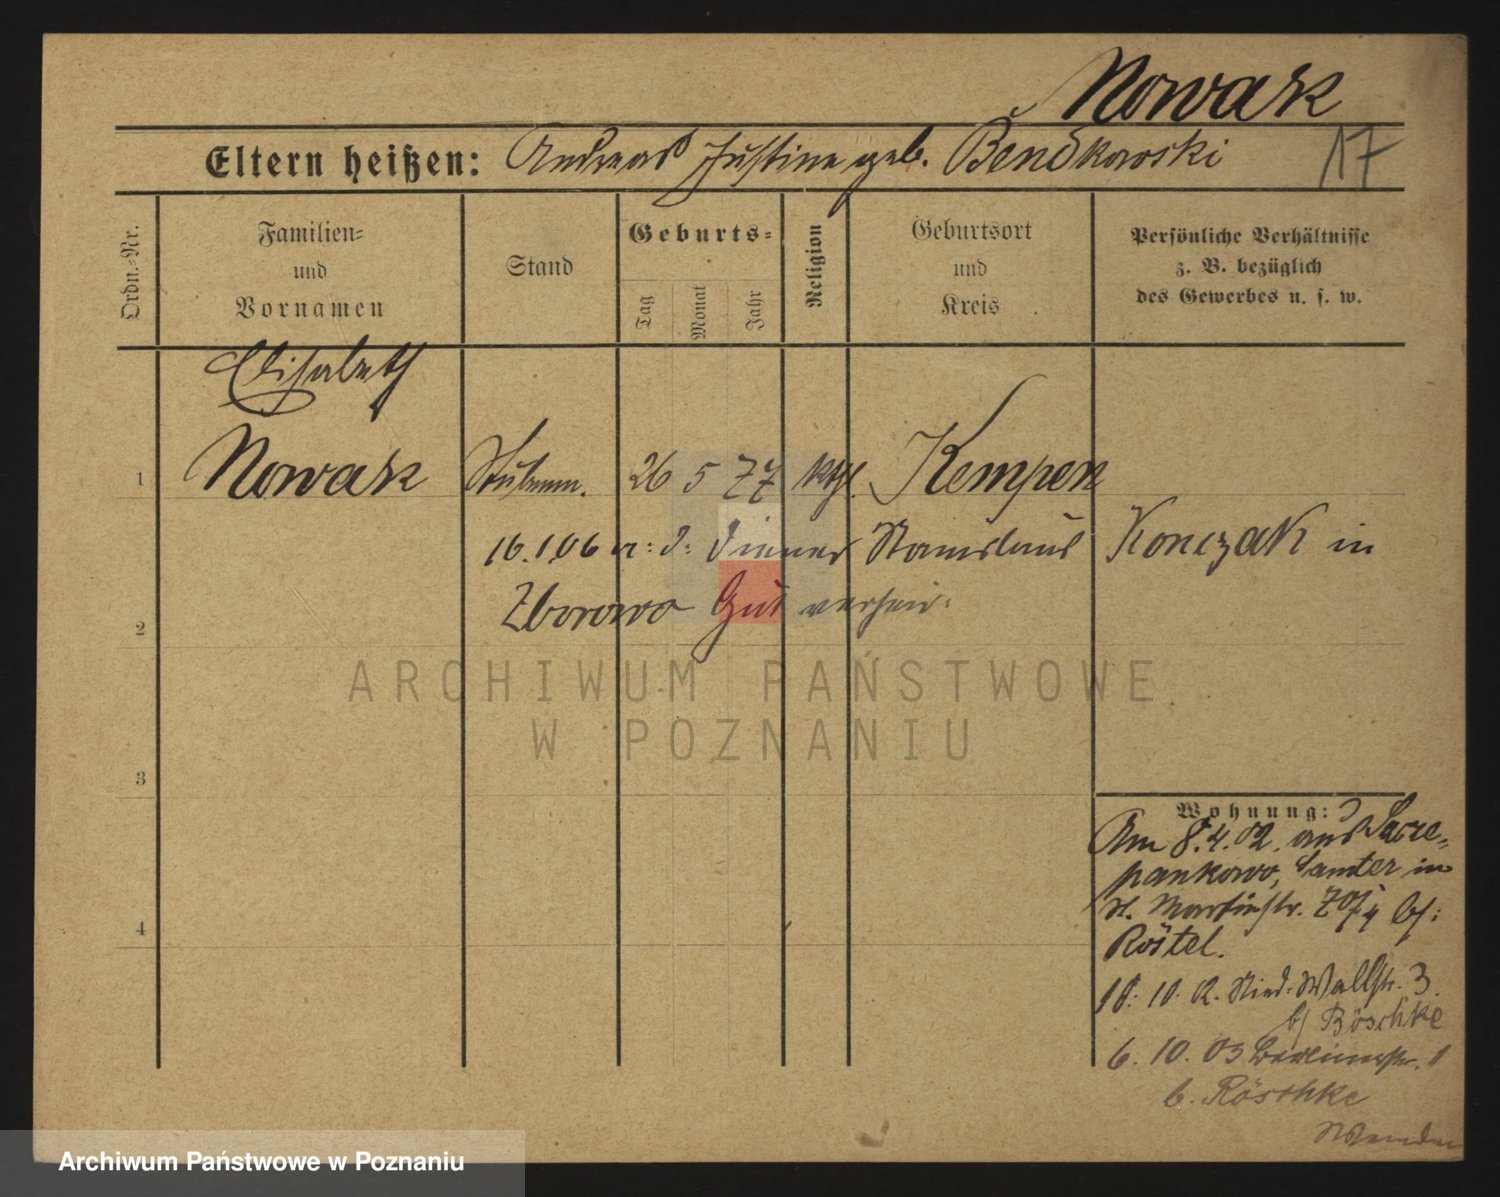 Nowak
Eltern heißen: Andreas Justine geb. Bendkowski
17
Ordn.-Nr.
Familien-
und
Vornamen
Stand
Geburts-
Tag
Monat
Jahr
Religion
Geburtsort
und
Kreis
Persönliche Verhältnisse
z. B. bezüglich
des Gewerbes u. s. w.
Elisabeth
1 Nowak Stubenm. 26 5 77 kth. Kempen
16.1.06 a: d: Diener Stanislaus Konczak in
2
Zborowo Gut verheir:
ARCHIWUM PAŃSTWOWE
W POZNANIU
3
Wohnung:
Am 8.4.02. aus
pankowo, Samter in
St. Martinstr. b/:
4
Röstel.
18. 10. 02. Nied. Wallstr. 3.
b/ Röschke
6. 10. 03 Berlinerstr. 1
b. Röschke
Wenden
Archiwum Państwowe w Poznaniu